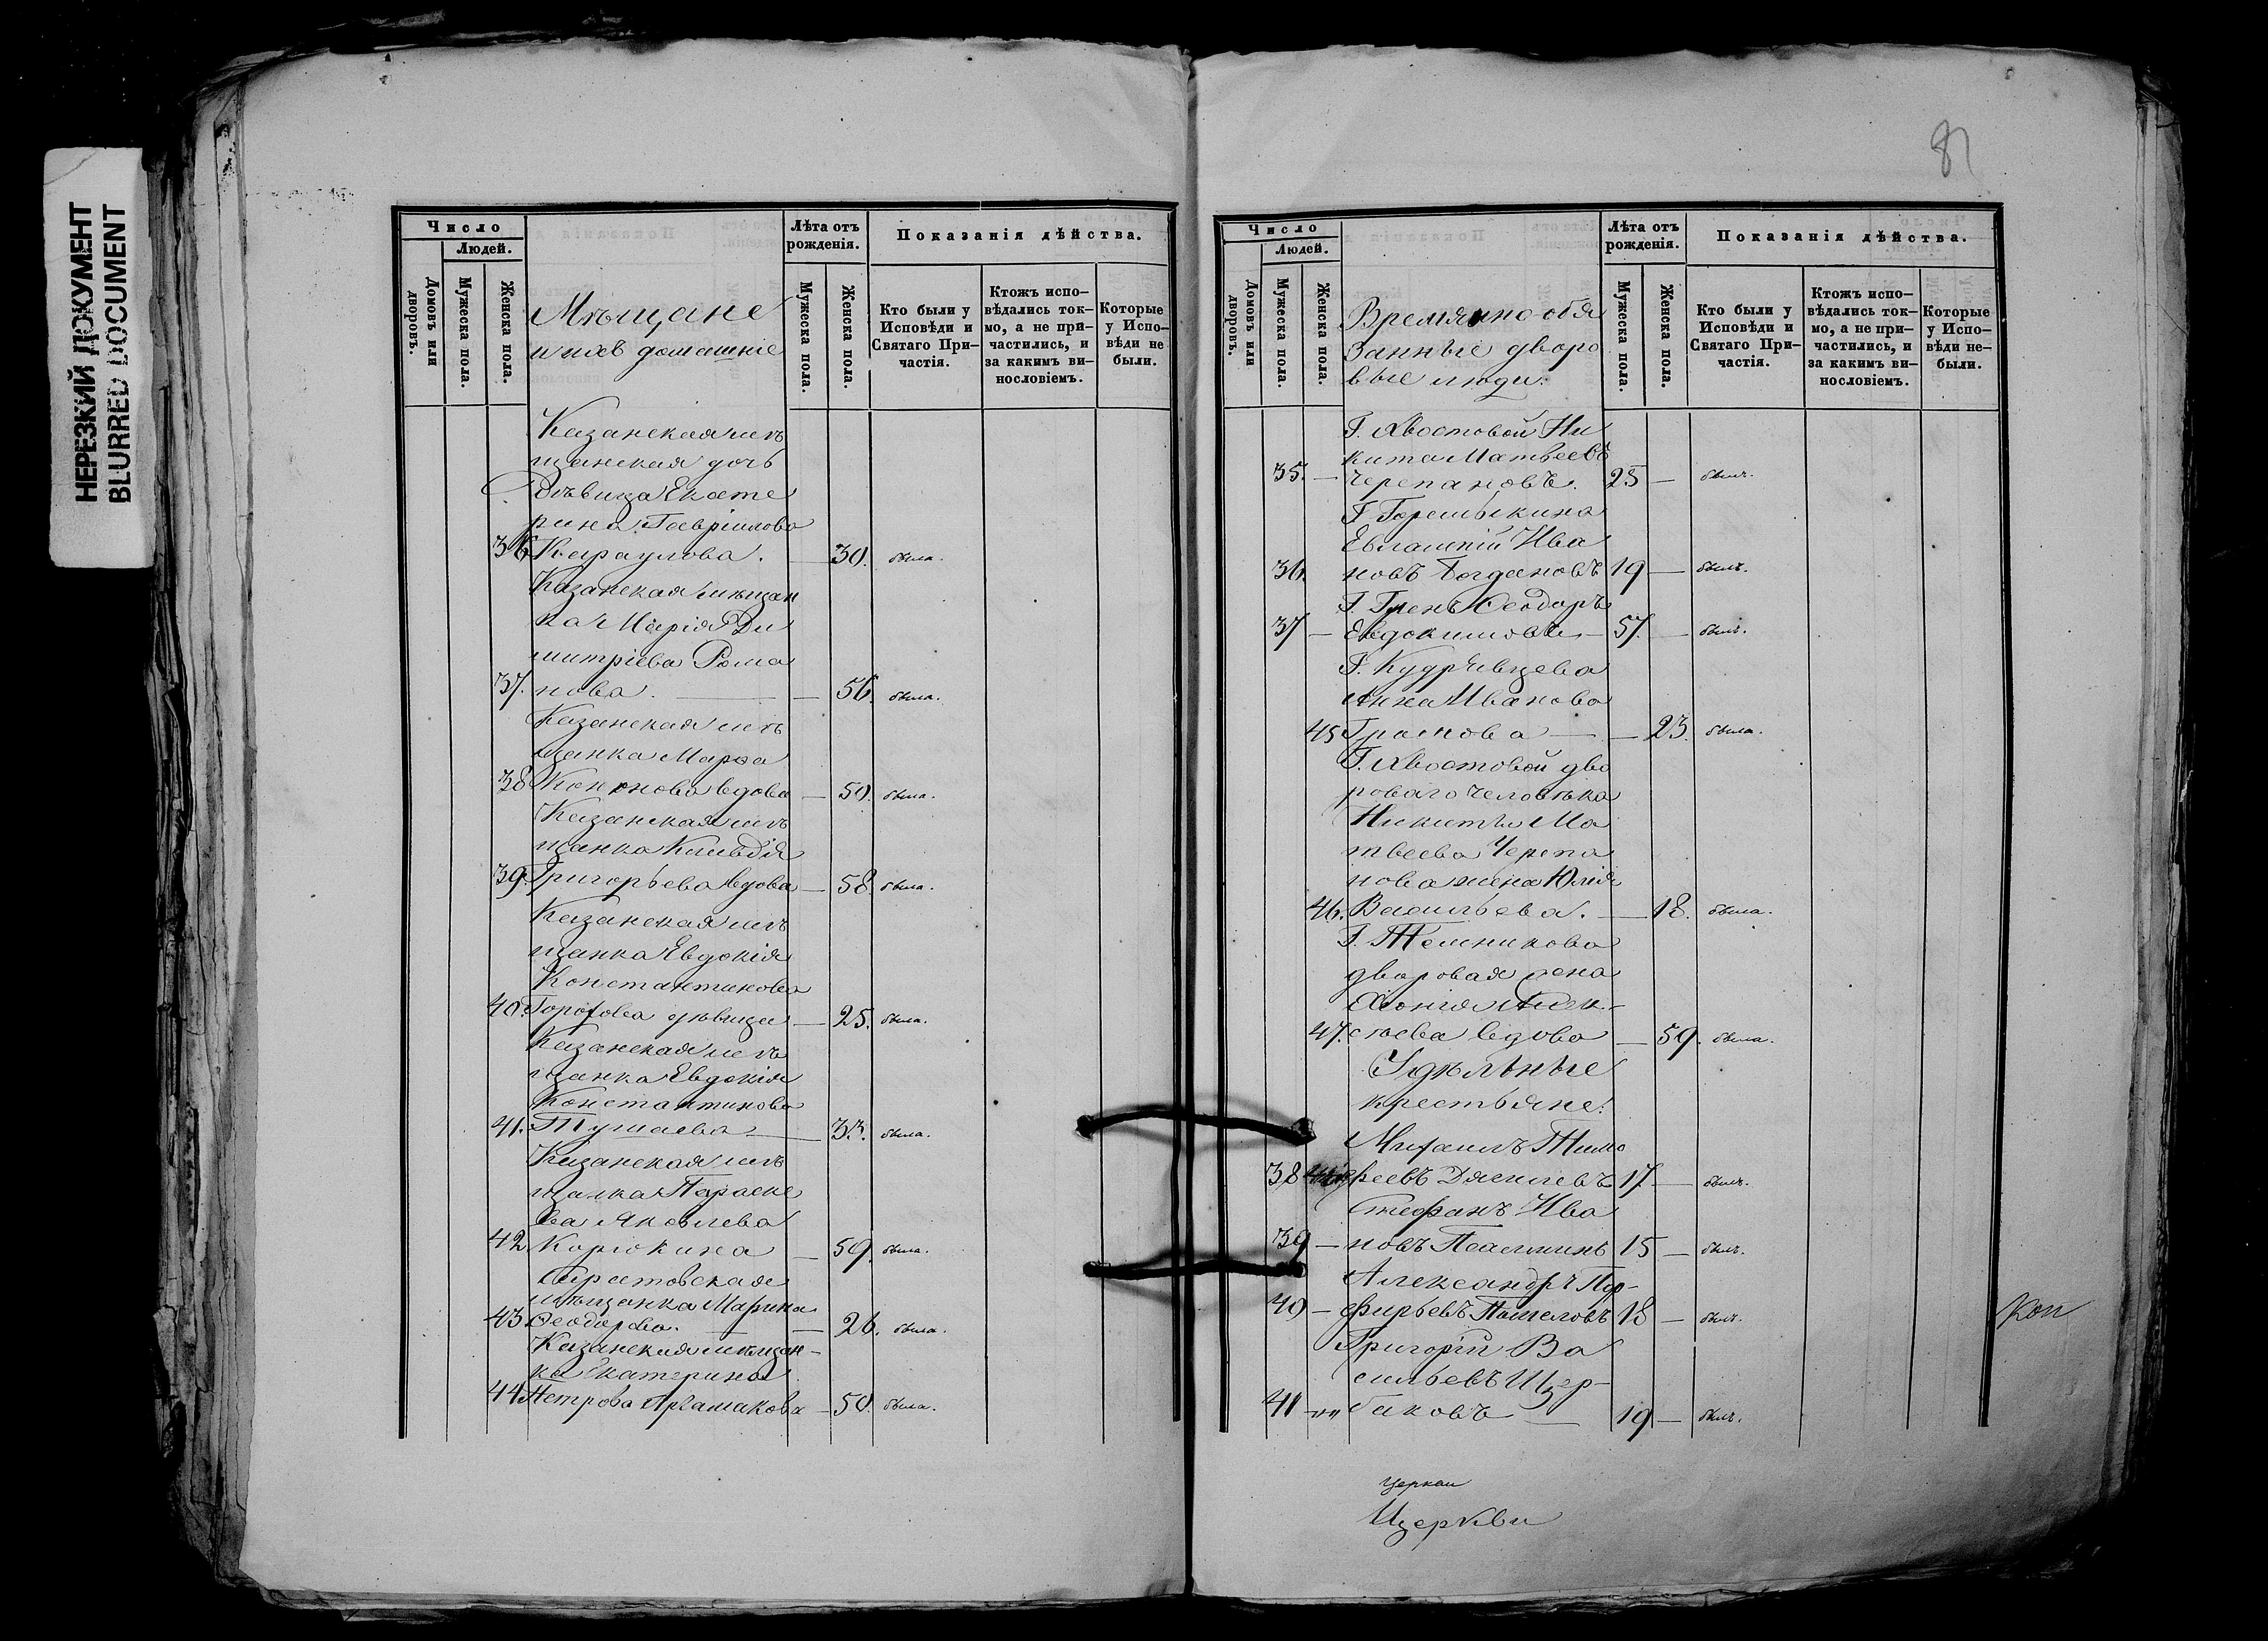 НЕРЕЗКИЙ ДОКУМЕНТ
BLURRED DOCUMENT
Число
Людей.
Домовъ или дворовъ.
Мужеска пола.
Женска пола.
Мѣщане
и ихъ домашніе
Лѣта отъ рожденія.
Мужеска пола.
Женска пола.
Показанія дѣйства.
Кто были у Исповѣди и Святаго Причастія.
Ктожъ исповѣдались токмо, а не причастились, и за какимъ винословіемъ.
Которые у Исповѣди не были.
Казанская мѣ
щанская дочь
Дѣвица Екате
рина Гавріилова
36 Караулова. — 30. была.
Казанская мѣщан
ка Марія Ди
митріева Рома
37. нова. — 56. была.
Казанская мѣ
щанка Марѳа
38 Кононова вдова — 50. была.
Казанская мѣ
щанка Клавдія
39. Григорьева вдова — 58. была.
Казанская мѣ
щанка Евдокія
Константинова
40. Горохова дѣвица — 25. была.
Казанская мѣ
щанка Евдокія
Константинова
41. Тушаева — 33. была.
Казанская мѣ
щанка Параске
ва Яковлева
42 Корюкина — 59. была.
Саратовская
мѣщанка Марина
43. Ѳеодорова. — 26. была.
Казанская мѣщан-
ка Екатерина
44 Петрова Аргамакова — 50. была.
Число
Людей.
Домовъ или дворовъ.
Мужеска пола.
Женска пола.
Времянно обя
занные дворо
вые люди.
Лѣта отъ рожденія.
Мужеска пола.
Женска пола.
Показанія дѣйства.
Кто были у Исповѣди и Святаго Причастія.
Ктожъ исповѣдались токмо, а не причастились, и за какимъ винословіемъ.
Которые у Исповѣди небыли.
Г. Хвостовой Ни
кита Матвеевъ
35. — Черепановъ. 25 — былъ.
Г. Горемыкина
Евлампій Ива
36. новъ Богдановъ 19 — былъ.
Г. Ѳеодоръ
37 — Евдокимовъ — 57. — былъ.
Г. Кудрявцева
Анна Иванова
45 Громова — 23. была.
Г. Хвостовой дво
роваго человѣка
Никиты Ма
твеева Черепа
нова жена Юлія
46. Васильева. — 18. была.
Г. Темникова
дворовая жена
Хіонія Алек-
47. сѣева вдова — 59. была.
Удѣльные
крестьяне:
Михаилъ Тимо
38 феевъ 17. — былъ.
Стефанъ Ива
39 — новъ 15 — былъ.
Александръ Пор-
40 — фирьевъ 18 — былъ.
Григорій Ва
сильевъ Щер-
41 баковъ — 19 — былъ.
церкви
Церкви